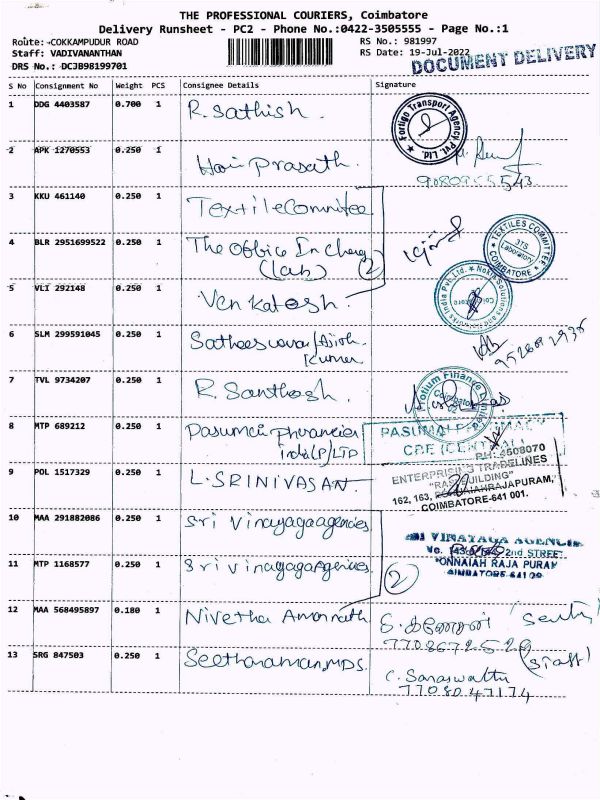 THE PROFESSIONAL COURIERS, Coimbatore
Delivery Runsheet - PC2 - Phone No.:0422-3505555 - Page No.:1
Route: COKKAMPUDUR ROAD
Staff: VADIVANANTHAN
DRS No.: DCJB98199701
RS No.: 981997
RS Date: 19-Jul-2022
DOCUMENT DELIVERY
S No Consignment No Weight PCS Consignee Details Signature
1 DDG 4403587 0.700 1 R. Sathish
Fortigo Transport Agency Pvt. Ltd.
2 APK 1270553 0.250 1 Hari Prasath
9080955543
3 KKU 461140 0.250 1 Textile Commitee
TEXTILES COMMITTEE COIMBATORE
4 BLR 2951699522 0.250 1 The Office In Charg
(Lab) 2
5 VLI 292148 0.250 1 Venkatesh
6 SLM 299591045 0.250 1 Satheeswaran/Ajith
Kumar
7 TVL 9734207 0.250 1 R. Santhosh
8 MTP 689212 0.250 1 Pasumai Pharancies
India(P)/LTD
PH: 4508070
9 POL 1517329 0.250 1 L. SRINIVASAN
ENTERPRISING TRADELINES
162, 163,
COIMBATORE-641 001.
10 MAA 291882086 0.250 1 Sri Vinayaga agencies
VINAYAGA AGENCIE
2nd STREET
ONNAIAH RAJA PURAM
11 MTP 1168577 0.250 1 Sri Vinayaga agencies
2
12 MAA 568495897 0.180 1 Nivetha Amarnath
S. கணேசன்
7708672529
13 SRG 847503 0.250 1 Seetharaman, MDS.
(Staff)
C. Saraswathi
7708047174